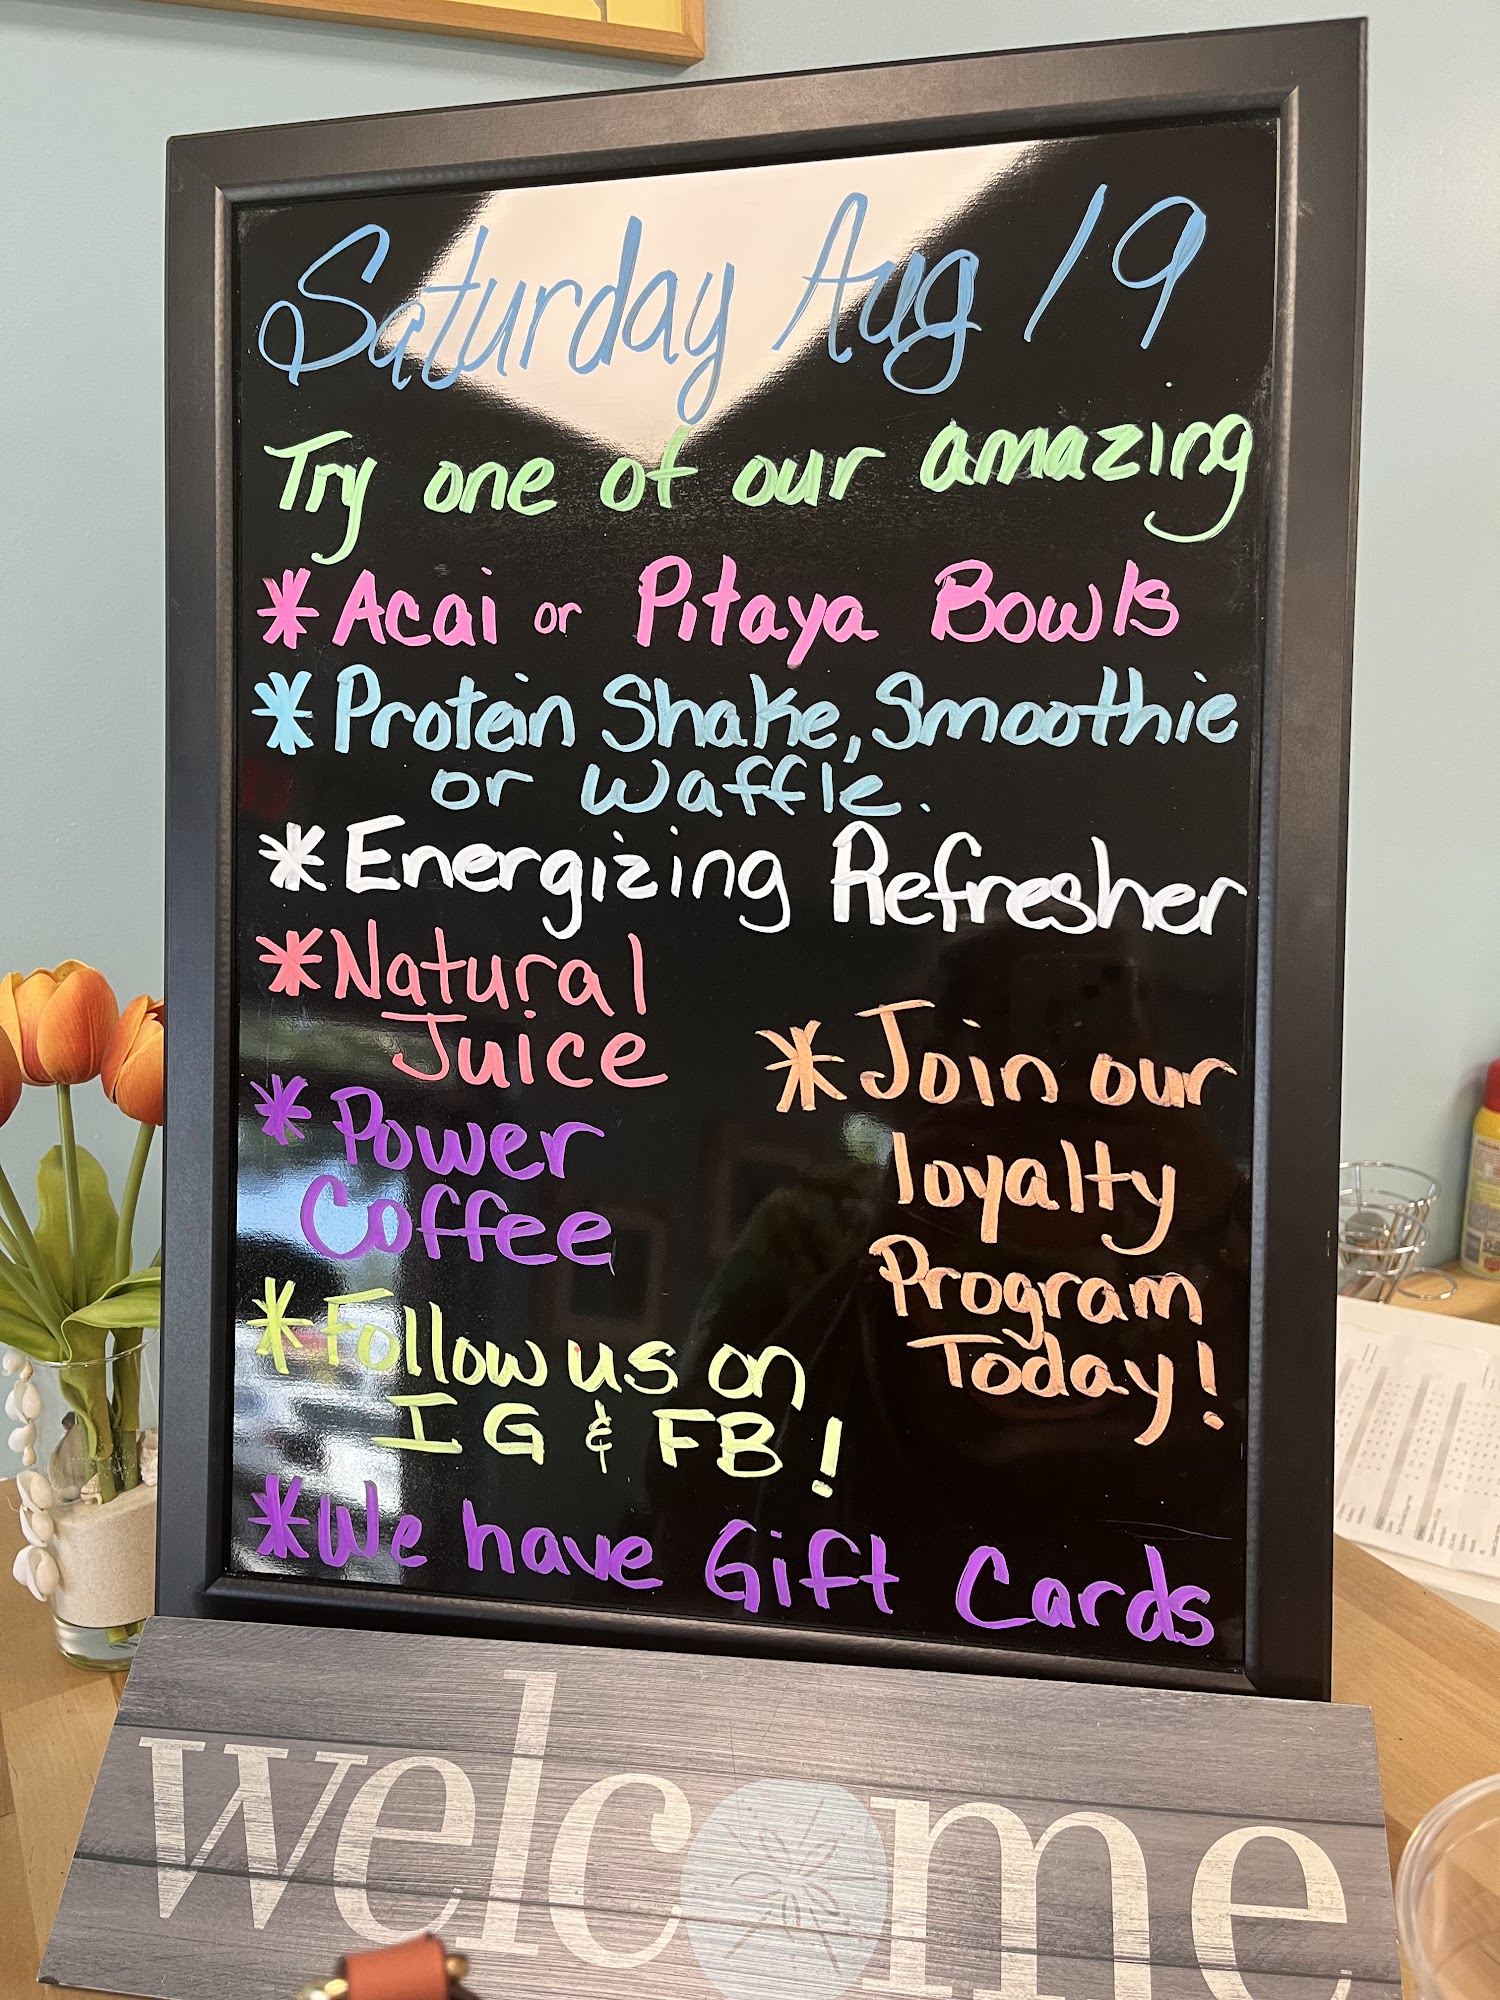 Saturday Aug 19
Try one of our amazing
* Acai or Pitaya Bowls
* Protein Shake, Smoothie
or Waffle.
* Energizing Refresher
* Natural
Juice
* Power
Coffee
* Join our
loyalty
Program
Today!
* Follow us on
IG & FB!
* We have Gift Cards
welcome